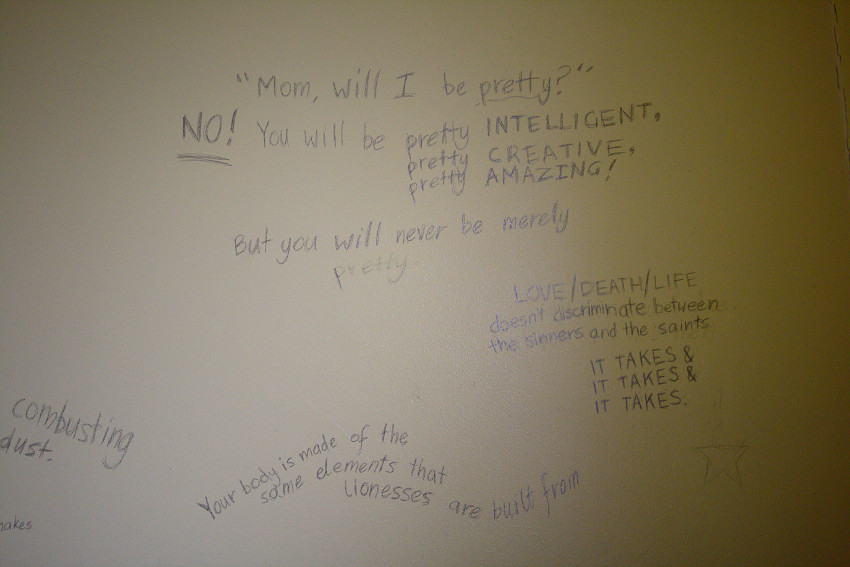 "Mom, will I be pretty?"
NO! You will be pretty INTELLIGENT,
pretty CREATIVE,
pretty AMAZING!
But you will never be merely
pretty
LOVE/DEATH/LIFE
doesn't discriminate between
the sinners and the saints
IT TAKES &
IT TAKES &
IT TAKES.
combusting
dust.
Your body is made of the
same elements that
lionesses are built from
makes